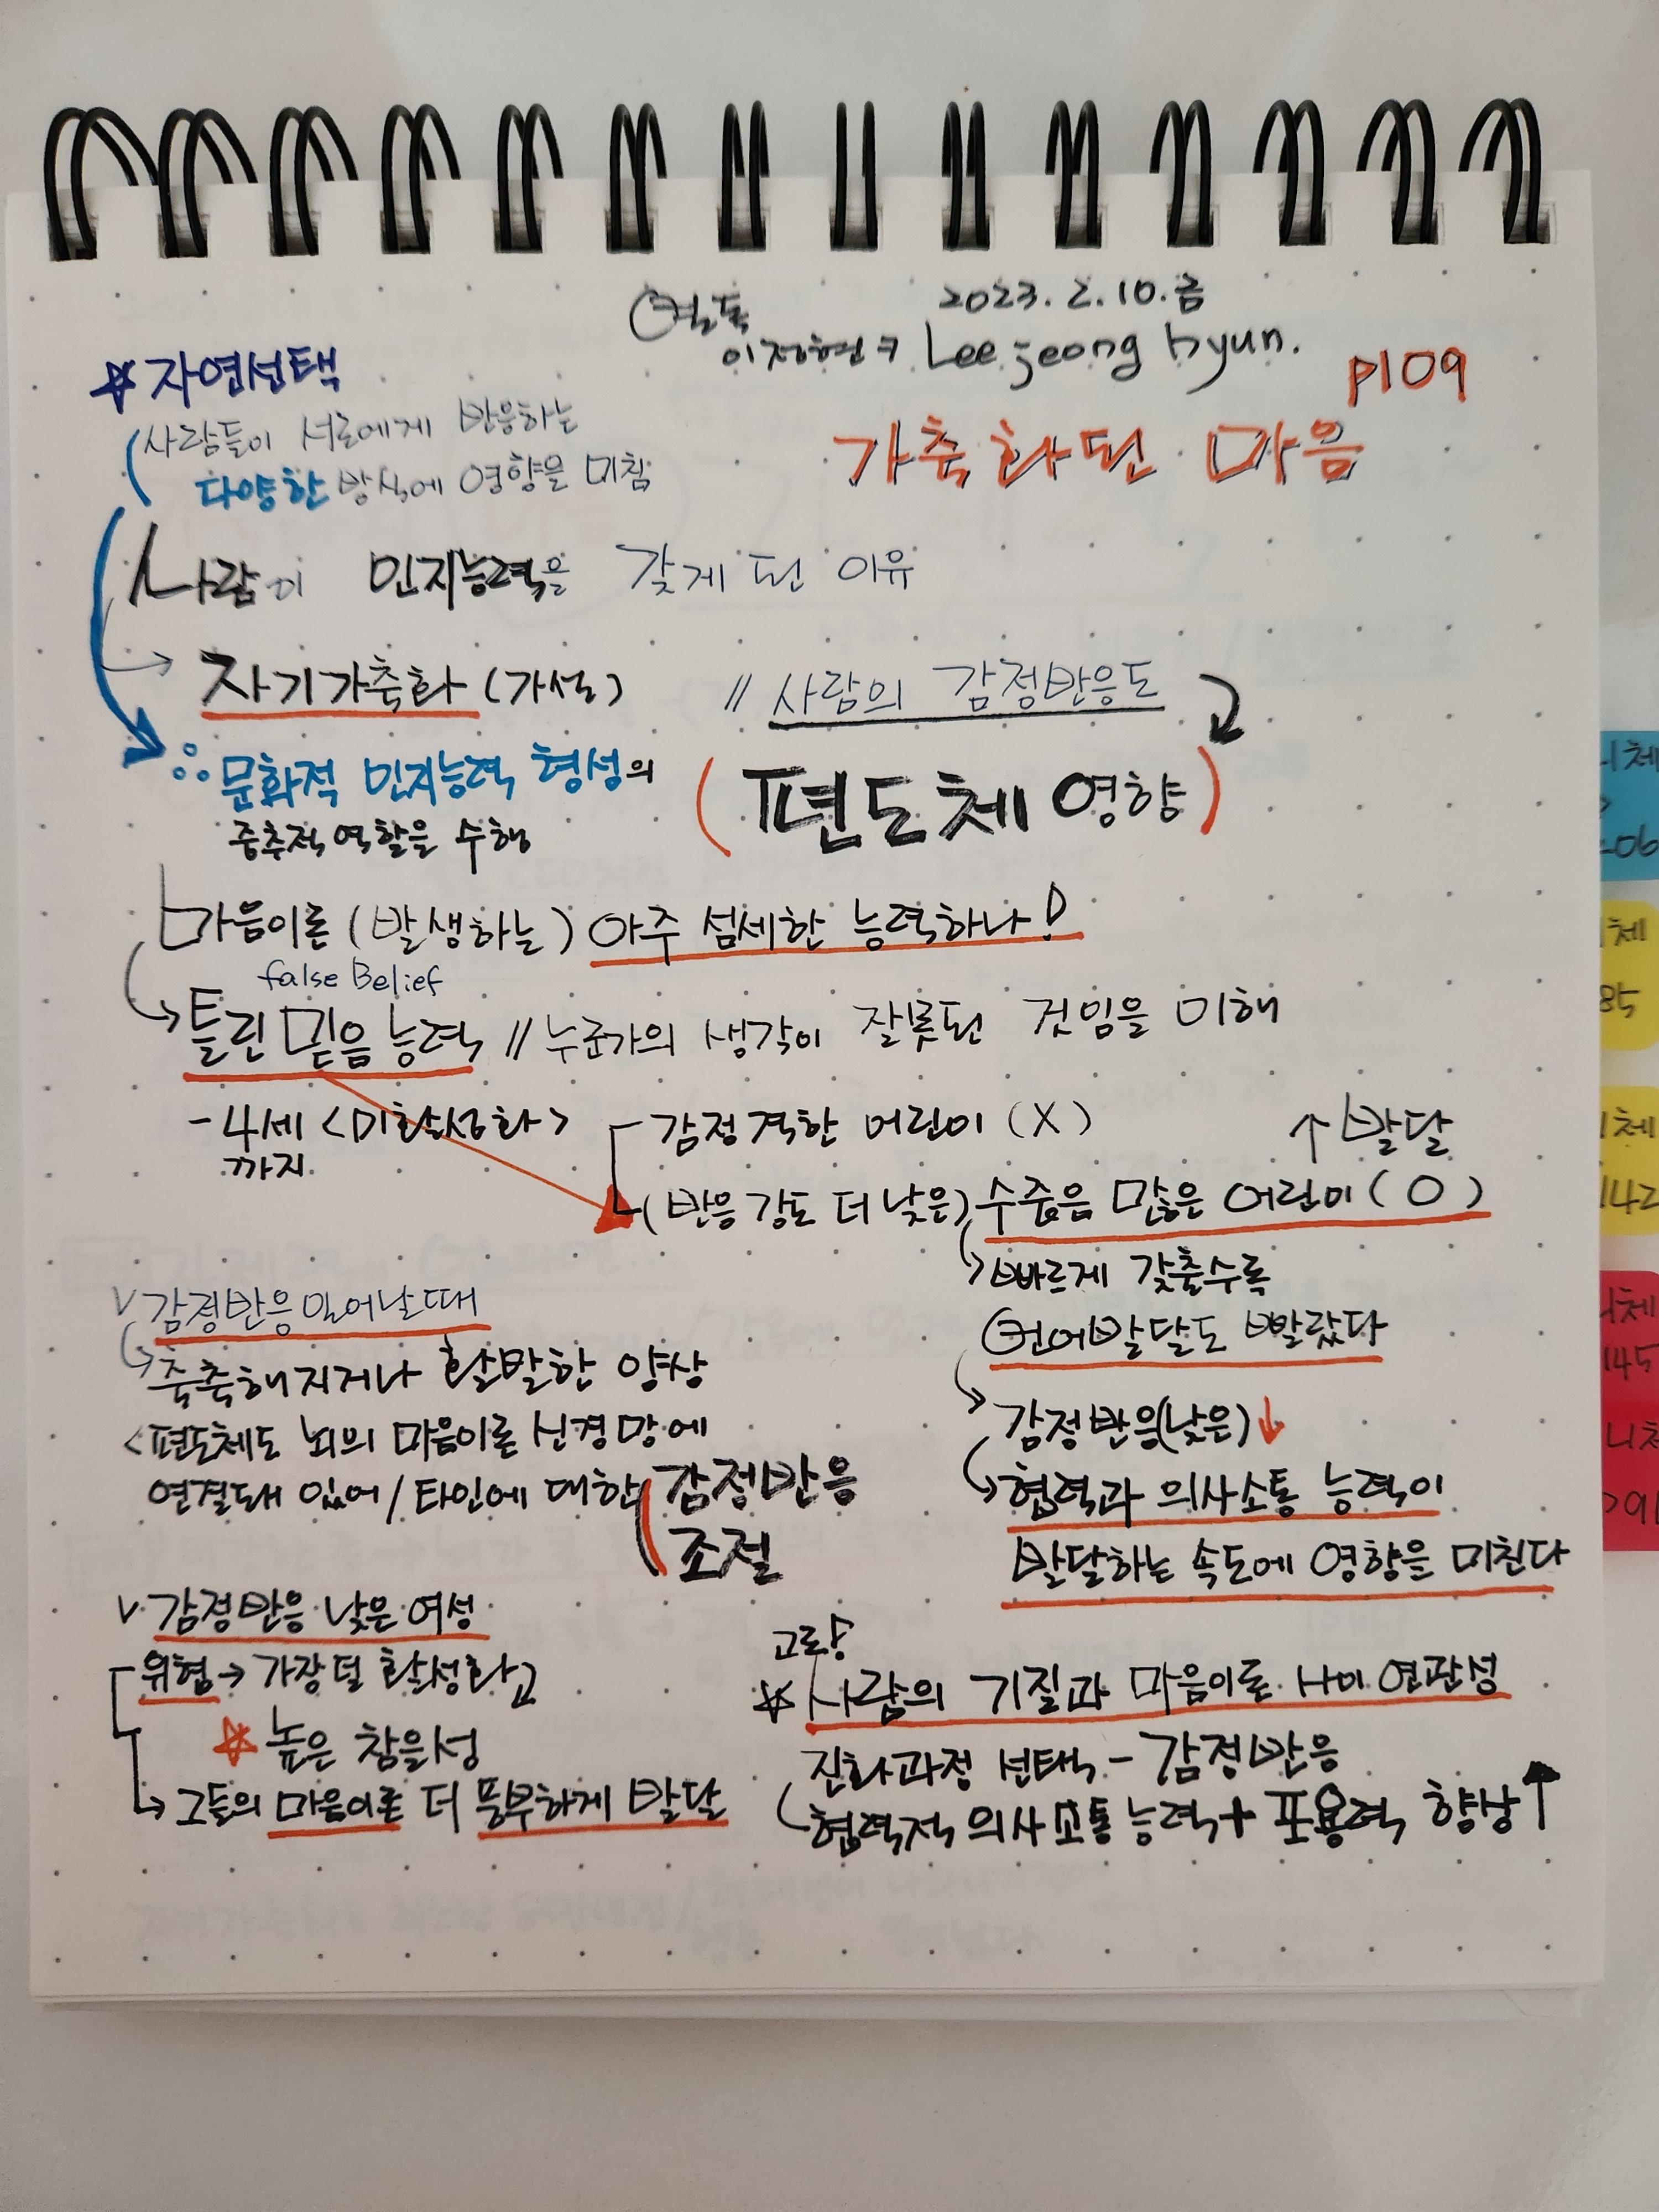 2023. 2. 10. 금
열독
이정현 Lee jeong hyun.
p109
가축화된 마음
☆ 자연선택
사람들이 서로에게 반응하는
다양한 방식에 영향을 미침
사람이 인지능력을 갖게 된 이유
→ 자기가축화 (가설)
// 사람의 감정반응도
(편도체 영향)
∴ 문화적 인지능력 형성의
중추적 역할을 수행
마음이론 (발생하는) 아주 섬세한 능력하나!
false Belief
틀린 믿음 능력 // 누군가의 생각이 잘못된 것임을 이해
- 4세 <미활성화>
까지
감정격한 어린이 (X)
↑ 발달
(반응 강도 더 낮은) 수줍음 많은 어린이 (O)
빠르게 갖출수록
언어발달도 빨랐다
감정반응(낮은)↓
협력과 의사소통 능력이
발달하는 속도에 영향을 미친다
v 감정반응 일어날 때
축축해지거나 활발한 양상
<편도체도 뇌의 마음이론 신경망에
연결돼 있어 / 타인에 대한 감정반응
조절
v. 감정반응 낮은 여성
위협 → 가장 덜 활성화
☆ 높은 참을성
→ 그들의 마음이론 더 풍부하게 발달
☆ 사람의 기질과 마음이론 사이 연관성
진화과정 선택 - 감정반응
협력적 의사소통 능력 + 포용력 향상 ↑
니체
체
85
체
142
니체
145
니체